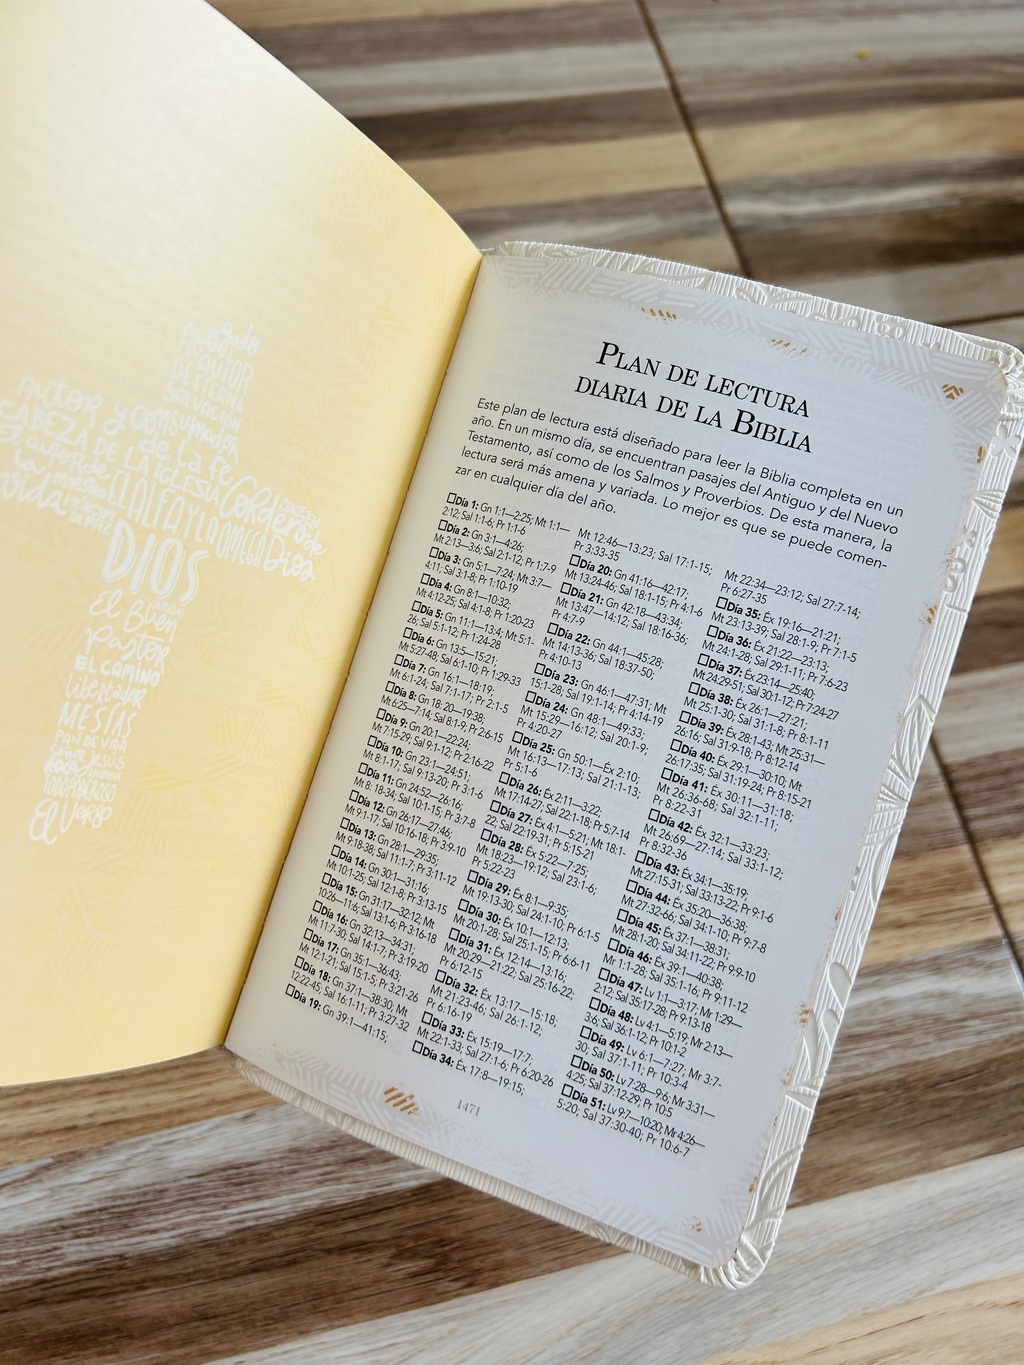 Abogado
AUTOR
DE ETERNA
SALVACIÓN
autor y consumador
CABEZA DE LA IGLESIA
de la fe
Cordero de
Dios
EL ALFA Y LA OMEGA
vida
DIOS
El Buen
Pastor
EL CAMINO
Libertador
MESÍAS
PAN DE VIDA
JESÚS
ROCA
TODOPODEROSO
El Verbo
PLAN DE LECTURA
DIARIA DE LA BIBLIA
Este plan de lectura está diseñado para leer la Biblia completa en un
año. En un mismo día, se encuentran pasajes del Antiguo y del Nuevo
Testamento, así como de los Salmos y Proverbios. De esta manera, la
lectura será más amena y variada. Lo mejor es que se puede comen-
zar en cualquier día del año.
☐Día 1: Gn 1:1—2:25; Mt 1:1—
2:12; Sal 1:1-6; Pr 1:1-6
☐Día 2: Gn 3:1—4:26;
Mt 2:13—3:6; Sal 2:1-12; Pr 1:7-9
☐Día 3: Gn 5:1—7:24; Mt 3:7—
4:11; Sal 3:1-8; Pr 1:10-19
☐Día 4: Gn 8:1—10:32;
Mt 4:12-25; Sal 4:1-8; Pr 1:20-23
☐Día 5: Gn 11:1—13:4; Mt 5:1-
26; Sal 5:1-12; Pr 1:24-28
☐Día 6: Gn 13:5—15:21;
Mt 5:27-48; Sal 6:1-10; Pr 1:29-33
☐Día 7: Gn 16:1—18:19;
Mt 6:1-24; Sal 7:1-17; Pr 2:1-5
☐Día 8: Gn 18:20—19:38;
Mt 6:25—7:14; Sal 8:1-9; Pr 2:6-15
☐Día 9: Gn 20:1—22:24;
Mt 7:15-29; Sal 9:1-12; Pr 2:16-22
☐Día 10: Gn 23:1—24:51;
Mt 8:1-17; Sal 9:13-20; Pr 3:1-6
☐Día 11: Gn 24:52—26:16;
Mt 8: 18-34; Sal 10:1-15; Pr 3:7-8
☐Día 12: Gn 26:17—27:46;
Mt 9:1-17; Sal 10:16-18; Pr 3:9-10
☐Día 13: Gn 28:1—29:35;
Mt 9:18-38; Sal 11:1-7; Pr 3:11-12
☐Día 14: Gn 30:1—31:16;
Mt 10:1-25; Sal 12:1-8; Pr 3:13-15
☐Día 15: Gn 31:17—32:12; Mt
10:26—11:6; Sal 13:1-6; Pr 3:16-18
☐Día 16: Gn 32:13—34:31;
Mt 11:7-30; Sal 14:1-7; Pr 3:19-20
☐Día 17: Gn 35:1—36:43;
Mt 12:1-21; Sal 15:1-5; Pr 3:21-26
☐Día 18: Gn 37:1—38:30; Mt
12:22-45; Sal 16:1-11; Pr 3:27-32
☐Día 19: Gn 39:1—41:15;
Mt 12:46—13:23; Sal 17:1-15;
Pr 3:33-35
☐Día 20: Gn 41:16—42:17;
Mt 13:24-46; Sal 18:1-15; Pr 4:1-6
☐Día 21: Gn 42:18—43:34;
Mt 13:47—14:12; Sal 18:16-36;
Pr 4:7-9
☐Día 22: Gn 44:1—45:28;
Mt 14:13-36; Sal 18:37-50;
Pr 4:10-13
☐Día 23: Gn 46:1—47:31; Mt
15:1-28; Sal 19:1-14; Pr 4:14-19
☐Día 24: Gn 48:1—49:33;
Mt 15:29—16:12; Sal 20:1-9;
Pr 4:20-27
☐Día 25: Gn 50:1—Éx 2:10;
Mt 16:13—17:13; Sal 21:1-13;
Pr 5:1-6
☐Día 26: Éx 2:11—3:22;
Mt 17:14-27; Sal 22:1-18; Pr 5:7-14
☐Día 27: Éx 4:1—5:21; Mt 18:1-
22; Sal 22:19-31; Pr 5:15-21
☐Día 28: Éx 5:22—7:25;
Mt 18:23—19:12; Sal 23:1-6;
Pr 5:22-23
☐Día 29: Éx 8:1—9:35;
Mt 19:13-30; Sal 24:1-10; Pr 6:1-5
☐Día 30: Éx 10:1—12:13;
Mt 20:1-28; Sal 25:1-15; Pr 6:6-11
☐Día 31: Éx 12:14—13:16;
Mt 20:29—21:22; Sal 25:16-22;
Pr 6:12-15
☐Día 32: Éx 13:17—15:18;
Mt 21:23-46; Sal 26:1-12;
Pr 6:16-19
☐Día 33: Éx 15:19—17:7;
Mt 22:1-33; Sal 27:1-6; Pr 6:20-26
☐Día 34: Éx 17:8—19:15;
Mt 22:34—23:12; Sal 27:7-14;
Pr 6:27-35
☐Día 35: Éx 19:16—21:21;
Mt 23:13-39; Sal 28:1-9; Pr 7:1-5
☐Día 36: Éx 21:22—23:13;
Mt 24:1-28; Sal 29:1-11; Pr 7:6-23
☐Día 37: Éx 23:14—25:40;
Mt 24:29-51; Sal 30:1-12; Pr 7:24-27
☐Día 38: Éx 26:1—27:21;
Mt 25:1-30; Sal 31:1-8; Pr 8:1-11
☐Día 39: Éx 28:1-43; Mt 25:31—
26:16; Sal 31:9-18; Pr 8:12-14
☐Día 40: Éx 29:1—30:10; Mt
26:17-35; Sal 31:19-24; Pr 8:15-21
☐Día 41: Éx 30:11—31:18;
Mt 26:36-68; Sal 32:1-11;
Pr 8:22-31
☐Día 42: Éx 32:1—33:23;
Mt 26:69—27:14; Sal 33:1-12;
Pr 8:32-36
☐Día 43: Éx 34:1—35:19;
Mt 27:15-31; Sal 33:13-22; Pr 9:1-6
☐Día 44: Éx 35:20—36:38;
Mt 27:32-66; Sal 34:1-10; Pr 9:7-8
☐Día 45: Éx 37:1—38:31;
Mt 28:1-20; Sal 34:11-22; Pr 9:9-10
☐Día 46: Éx 39:1—40:38;
Mr 1:1-28; Sal 35:1-16; Pr 9:11-12
☐Día 47: Lv 1:1—3:17; Mr 1:29—
2:12; Sal 35:17-28; Pr 9:13-18
☐Día 48: Lv 4:1—5:19; Mr 2:13—
3:6; Sal 36:1-12; Pr 10:1-2
☐Día 49: Lv 6:1—7:27; Mr 3:7-
30; Sal 37:1-11; Pr 10:3-4
☐Día 50: Lv 7:28—9:6; Mr 3:31—
4:25; Sal 37:12-29; Pr 10:5
☐Día 51: Lv 9:7—10:20; Mr 4:26—
5:20; Sal 37:30-40; Pr 10:6-7
1471